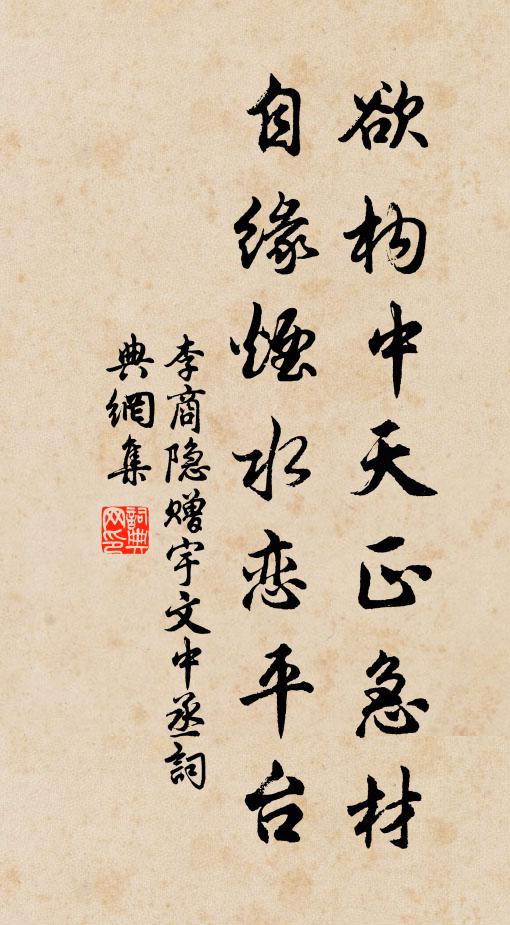 欲构中天正急材
自缘煙水恋平台
李商隐赠宇文中丞詞
典網集
詞典网印